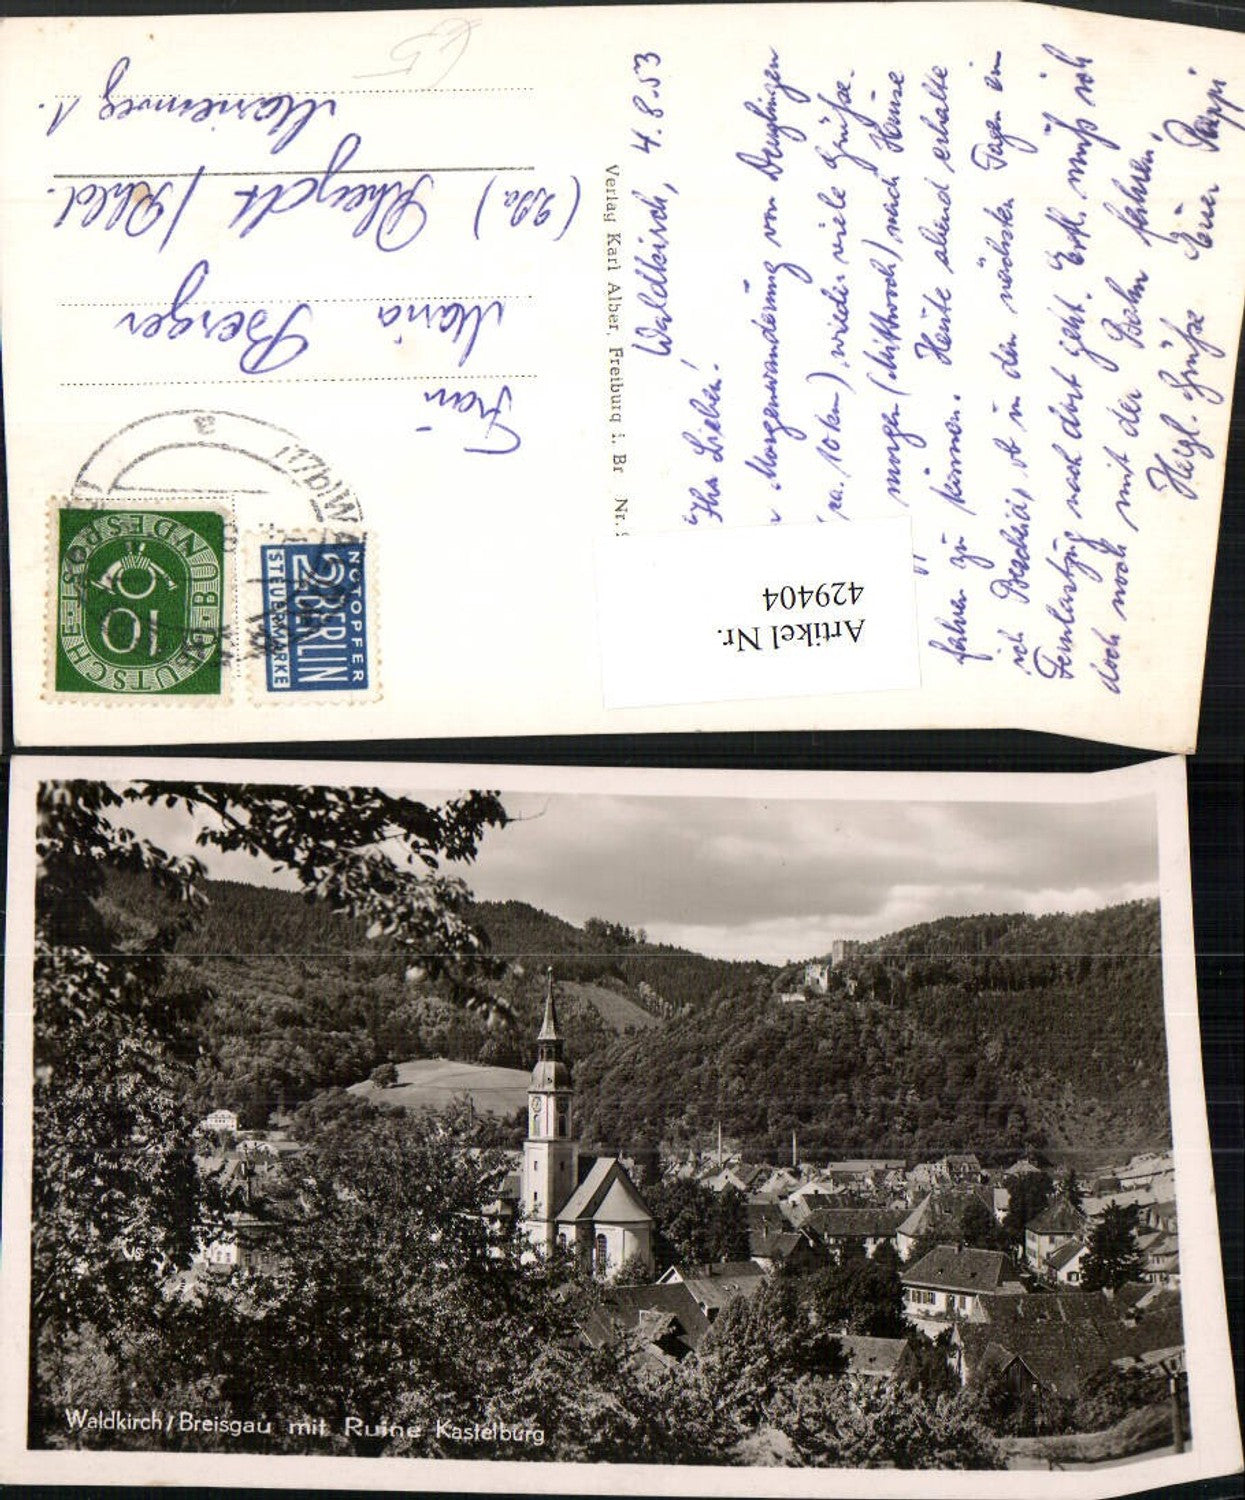 Waldkirch, 4.8.53
Ihr Lieben!
Morgenwanderung von Denzlingen
(ca. 10 km), wieder viele Grüße.
morgen (Mittwoch) nach Hause
fahren zu können. Heute abend erhalte
ich Bescheid, ob in den nächsten Tagen ein
Fernlastzug nach dort geht. Evtl. muß ich
doch noch mit der Bahn fahren.
Herzl. Grüße Euer Pappi
Verlag Karl Alber, Freiburg i. Br Nr.
Frau
Maria Berger
(22a) Rheydt / Rhld.
Marienweg 1.
DEUTSCHE BUNDESPOST
10
NOTOPFER
2 BERLIN
STEUERMARKE
Artikel Nr.
429404
Waldkirch/Breisgau mit Ruine Kastelburg